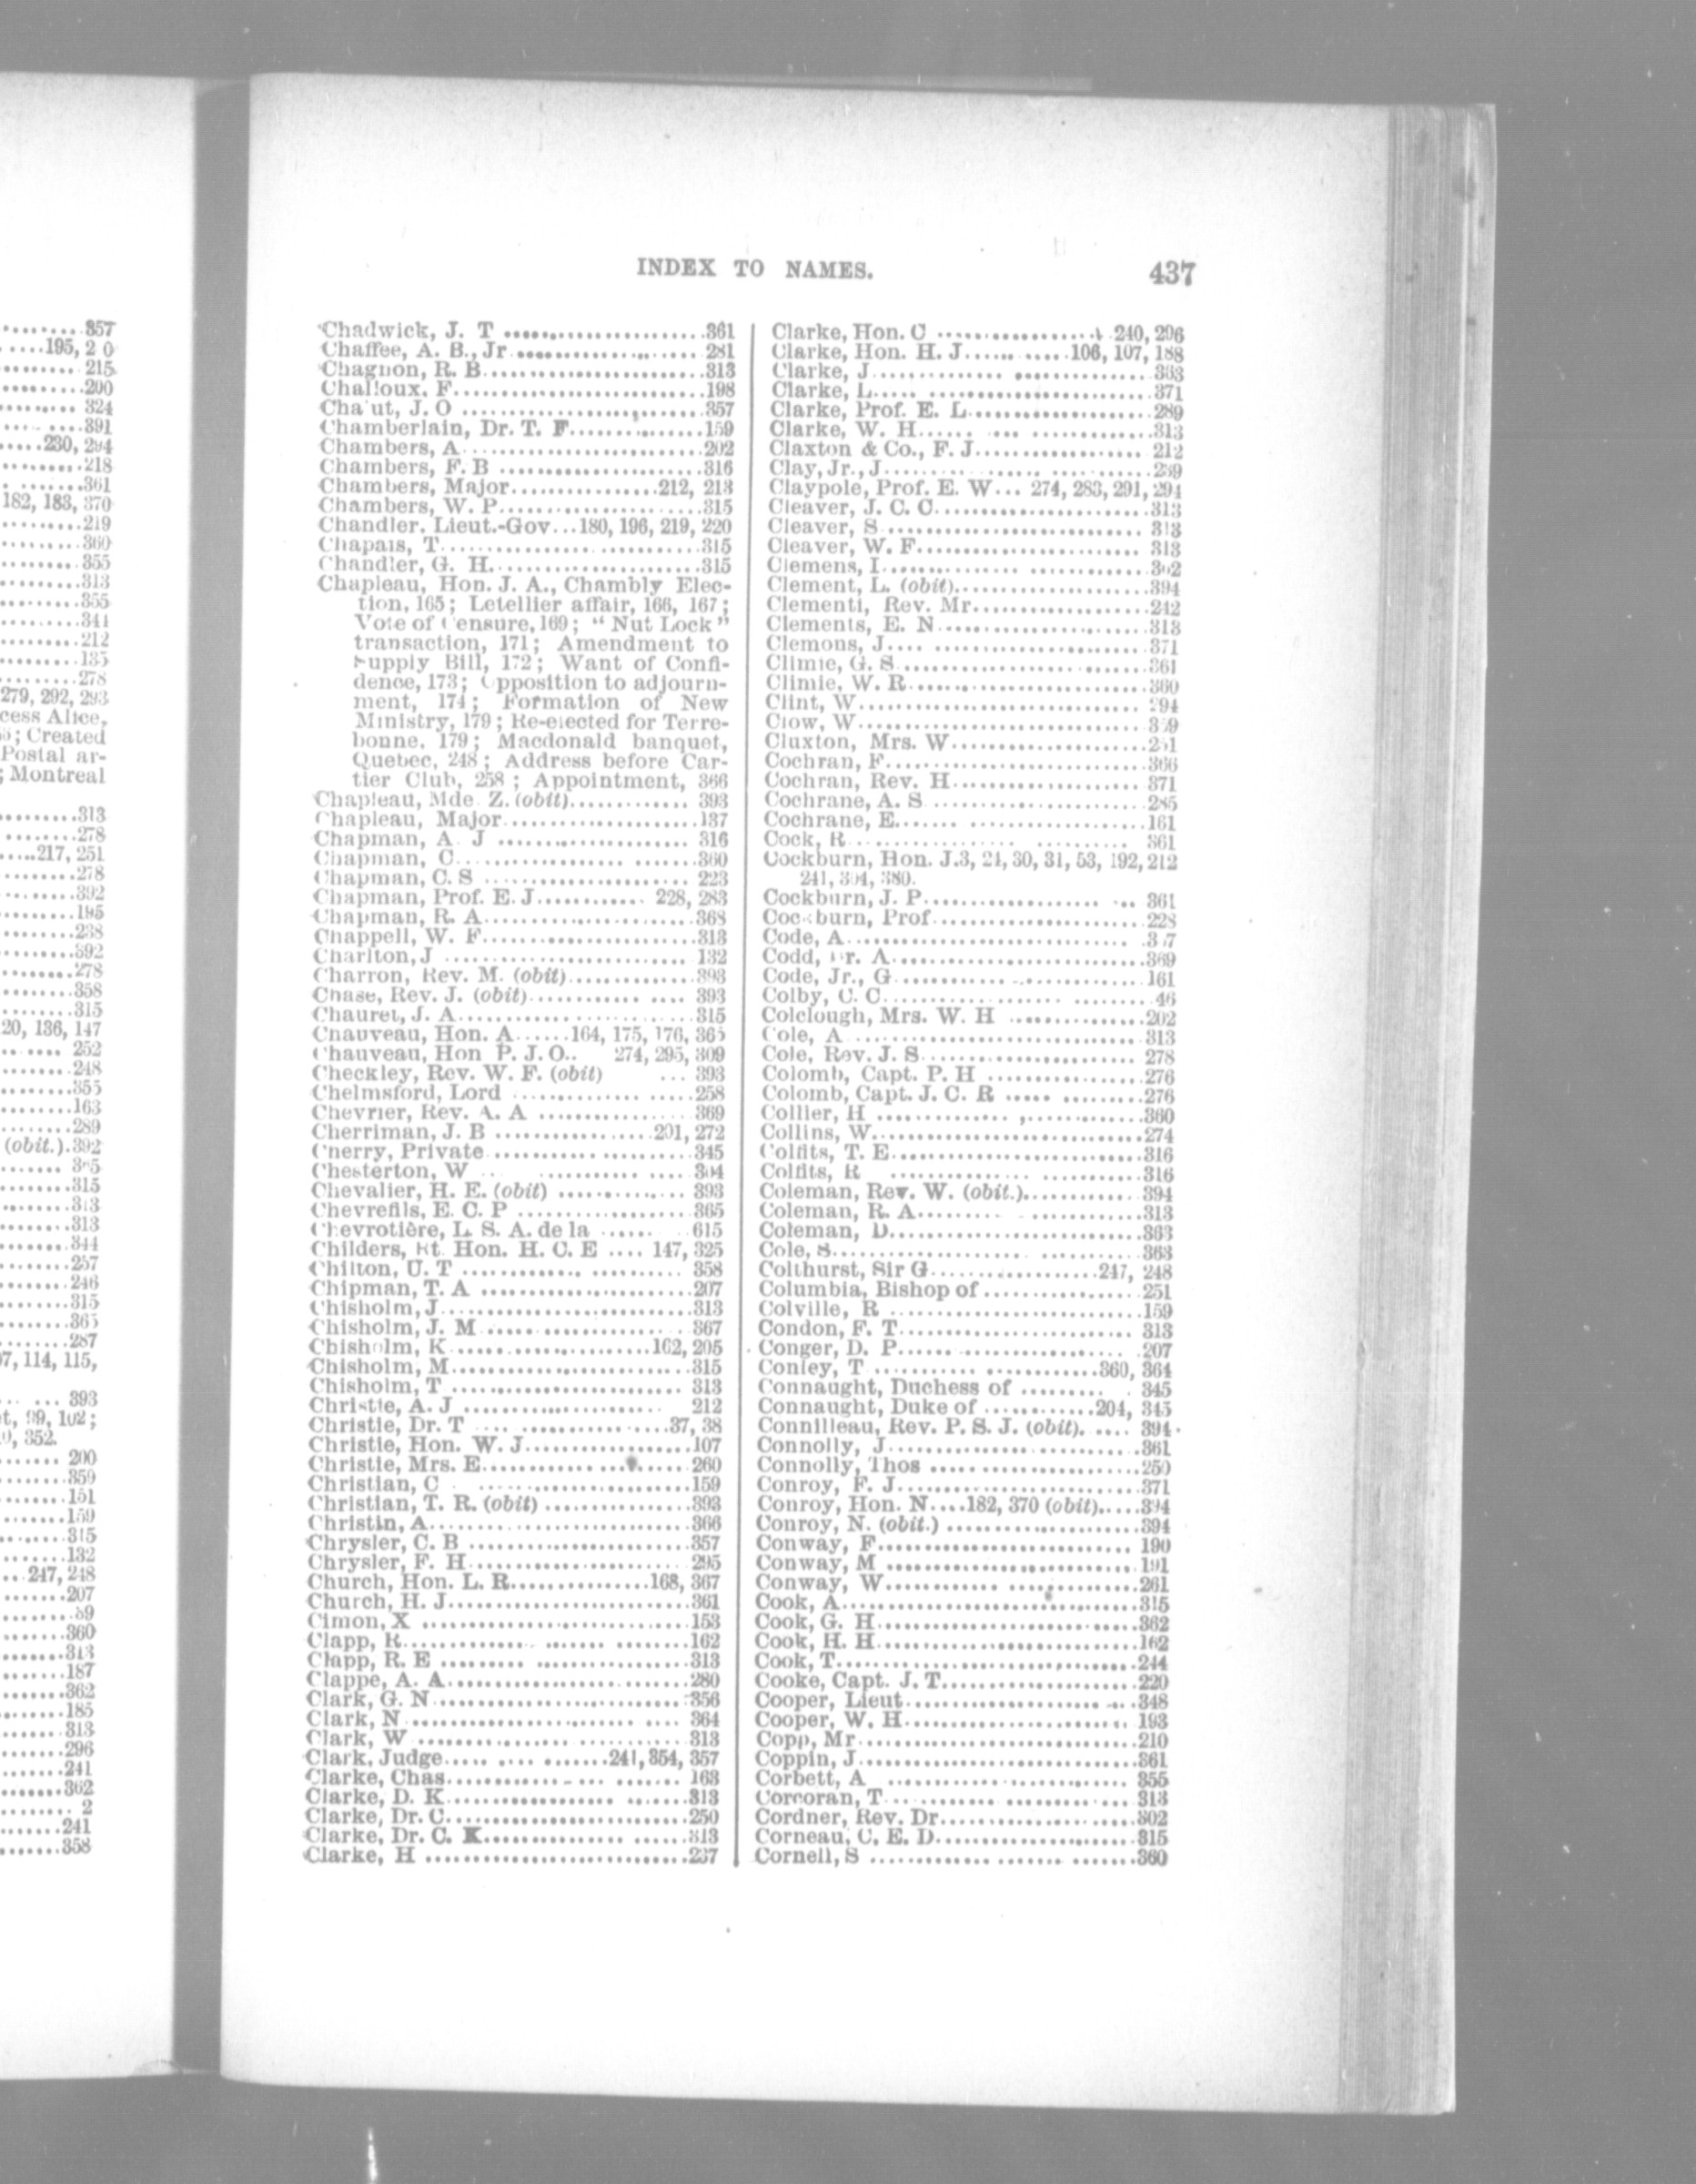 857
195, 2 0
215
200
324
391
230, 294
218
361
182, 183, 370
219
360
355
313
355
341
212
135
278
279, 292, 293
cess Alice,
; Created
Postal ar-
; Montreal
313
278
217, 251
278
392
195
238
392
278
358
315
20, 136, 147
252
248
355
163
289
(obit.).392
315
313
313
344
257
246
315
365
287
7, 114, 115,
393
t, 99, 102;
, 352.
200
359
151
159
315
132
247, 248
207
89
360
313
187
362
185
313
296
241
362
2
241
358
INDEX TO NAMES. 437
Chadwick, J. T ..... 361
Chaffee, A. B., Jr ..... 281
Chagnon, R. B. ..... 313
Challoux, F. ..... 198
Cha ut, J. O ..... 357
Chamberlain, Dr. T. F. ..... 159
Chambers, A. ..... 202
Chambers, F. B ..... 316
Chambers, Major ..... 212, 213
Chambers, W. P. ..... 315
Chandler, Lieut.-Gov...180, 196, 219, 220
Chapais, T. ..... 315
Chandler, G. H. ..... 315
Chapleau, Hon. J. A., Chambly Elec-
tion, 165; Letellier affair, 166, 167;
Vote of Censure, 169; "Nut Lock"
transaction, 171; Amendment to
Supply Bill, 172; Want of Confi-
dence, 173; Opposition to adjourn-
ment, 174; Formation of New
Ministry, 179; Re-elected for Terre-
bonne, 179; Macdonald banquet,
Quebec, 248; Address before Car-
tier Club, 258; Appointment, 366
Chapleau, Mde Z. (obit) ..... 393
Chapleau, Major ..... 137
Chapman, A. J ..... 316
Chapman, C. ..... 360
Chapman, C. S ..... 223
Chapman, Prof. E. J ..... 228, 283
Chapman, R. A. ..... 368
Chappell, W. F. ..... 313
Charlton, J ..... 132
Charron, Rev. M. (obit) ..... 393
Chase, Rev. J. (obit) ..... 393
Chauret, J. A. ..... 315
Chauveau, Hon. A. ..... 164, 175, 176, 365
Chauveau, Hon P. J. O.. 274, 295, 309
Checkley, Rev. W. F. (obit) ... 393
Chelmsford, Lord ..... 258
Chevrier, Rev. A. A ..... 369
Cherriman, J. B ..... 201, 272
Cherry, Private ..... 345
Chesterton, W ..... 304
Chevalier, H. E. (obit) ..... 393
Chevrefils, E. C. P ..... 365
Chevrotière, L. S. A. de la ..... 615
Childers, Rt. Hon. H. C. E .... 147, 325
Chilton, U. T ..... 358
Chipman, T. A ..... 207
Chisholm, J. ..... 313
Chisholm, J. M ..... 367
Chisholm, K ..... 162, 205
Chisholm, M. ..... 315
Chisholm, T ..... 313
Christie, A. J ..... 212
Christie, Dr. T ..... 37, 38
Christie, Hon. W. J. ..... 107
Christie, Mrs. E. ..... 260
Christian, C ..... 159
Christian, T. R. (obit) ..... 393
Christin, A. ..... 366
Chrysler, C. B ..... 357
Chrysler, F. H. ..... 295
Church, Hon. L. R. ..... 168, 367
Church, H. J. ..... 361
Cimon, X ..... 153
Clapp, R. ..... 162
Clapp, R. E ..... 313
Clappe, A. A. ..... 280
Clark, G. N. ..... 356
Clark, N ..... 364
Clark, W ..... 313
Clark, Judge ..... 241, 354, 357
Clarke, Chas. ..... 163
Clarke, D. K. ..... 313
Clarke, Dr. C. ..... 250
Clarke, Dr. C. K. ..... 313
Clarke, H ..... 237
Clarke, Hon. C ..... 240, 296
Clarke, Hon. H. J. ..... 106, 107, 188
Clarke, J. ..... 363
Clarke, L. ..... 371
Clarke, Prof. E. L. ..... 289
Clarke, W. H. ..... 313
Claxton & Co., F. J. ..... 212
Clay, Jr., J. ..... 239
Claypole, Prof. E. W... 274, 283, 291, 294
Cleaver, J. C. C. ..... 313
Cleaver, S ..... 313
Cleaver, W. F. ..... 313
Clemens, I. ..... 302
Clement, L. (obit) ..... 394
Clementi, Rev. Mr. ..... 242
Clements, E. N. ..... 313
Clemons, J. ..... 371
Climie, G. S. ..... 361
Climie, W. R. ..... 360
Clint, W. ..... 294
Clow, W. ..... 359
Cluxton, Mrs. W. ..... 251
Cochran, F. ..... 366
Cochran, Rev. H. ..... 371
Cochrane, A. S ..... 285
Cochrane, E. ..... 161
Cock, R. ..... 361
Cockburn, Hon. J.3, 21, 30, 31, 53, 192, 212
241, 304, 380.
Cockburn, J. P. ..... 361
Cockburn, Prof. ..... 228
Code, A. ..... 3 7
Codd, Dr. A. ..... 369
Code, Jr., G. ..... 161
Colby, C. C. ..... 46
Colclough, Mrs. W. H ..... 202
Cole, A ..... 313
Cole, Rev. J. S. ..... 278
Colomb, Capt. P. H ..... 276
Colomb, Capt. J. C. R ..... 276
Collier, H ..... 360
Collins, W. ..... 274
Colfits, T. E. ..... 316
Colfits, R ..... 316
Coleman, Rev. W. (obit.) ..... 394
Coleman, R. A. ..... 313
Coleman, D. ..... 363
Cole, S. ..... 363
Colthurst, Sir G. ..... 247, 248
Columbia, Bishop of ..... 251
Colville, R ..... 159
Condon, F. T. ..... 313
Conger, D. P. ..... 207
Conley, T ..... 360, 364
Connaught, Duchess of ..... 345
Connaught, Duke of ..... 204, 345
Connilleau, Rev. P. S. J. (obit). .... 394
Connolly, J. ..... 361
Connolly, Thos ..... 250
Conroy, F. J. ..... 371
Conroy, Hon. N....182, 370 (obit)....394
Conroy, N. (obit.) ..... 394
Conway, F. ..... 190
Conway, M ..... 191
Conway, W. ..... 261
Cook, A. ..... 315
Cook, G. H. ..... 362
Cook, H. H. ..... 162
Cook, T. ..... 244
Cooke, Capt. J. T. ..... 220
Cooper, Lieut. ..... 348
Cooper, W. H. ..... 193
Copp, Mr. ..... 210
Coppin, J. ..... 361
Corbett, A ..... 355
Corcoran, T. ..... 313
Cordner, Rev. Dr. ..... 302
Corneau, C. E. D. ..... 315
Cornell, S ..... 360